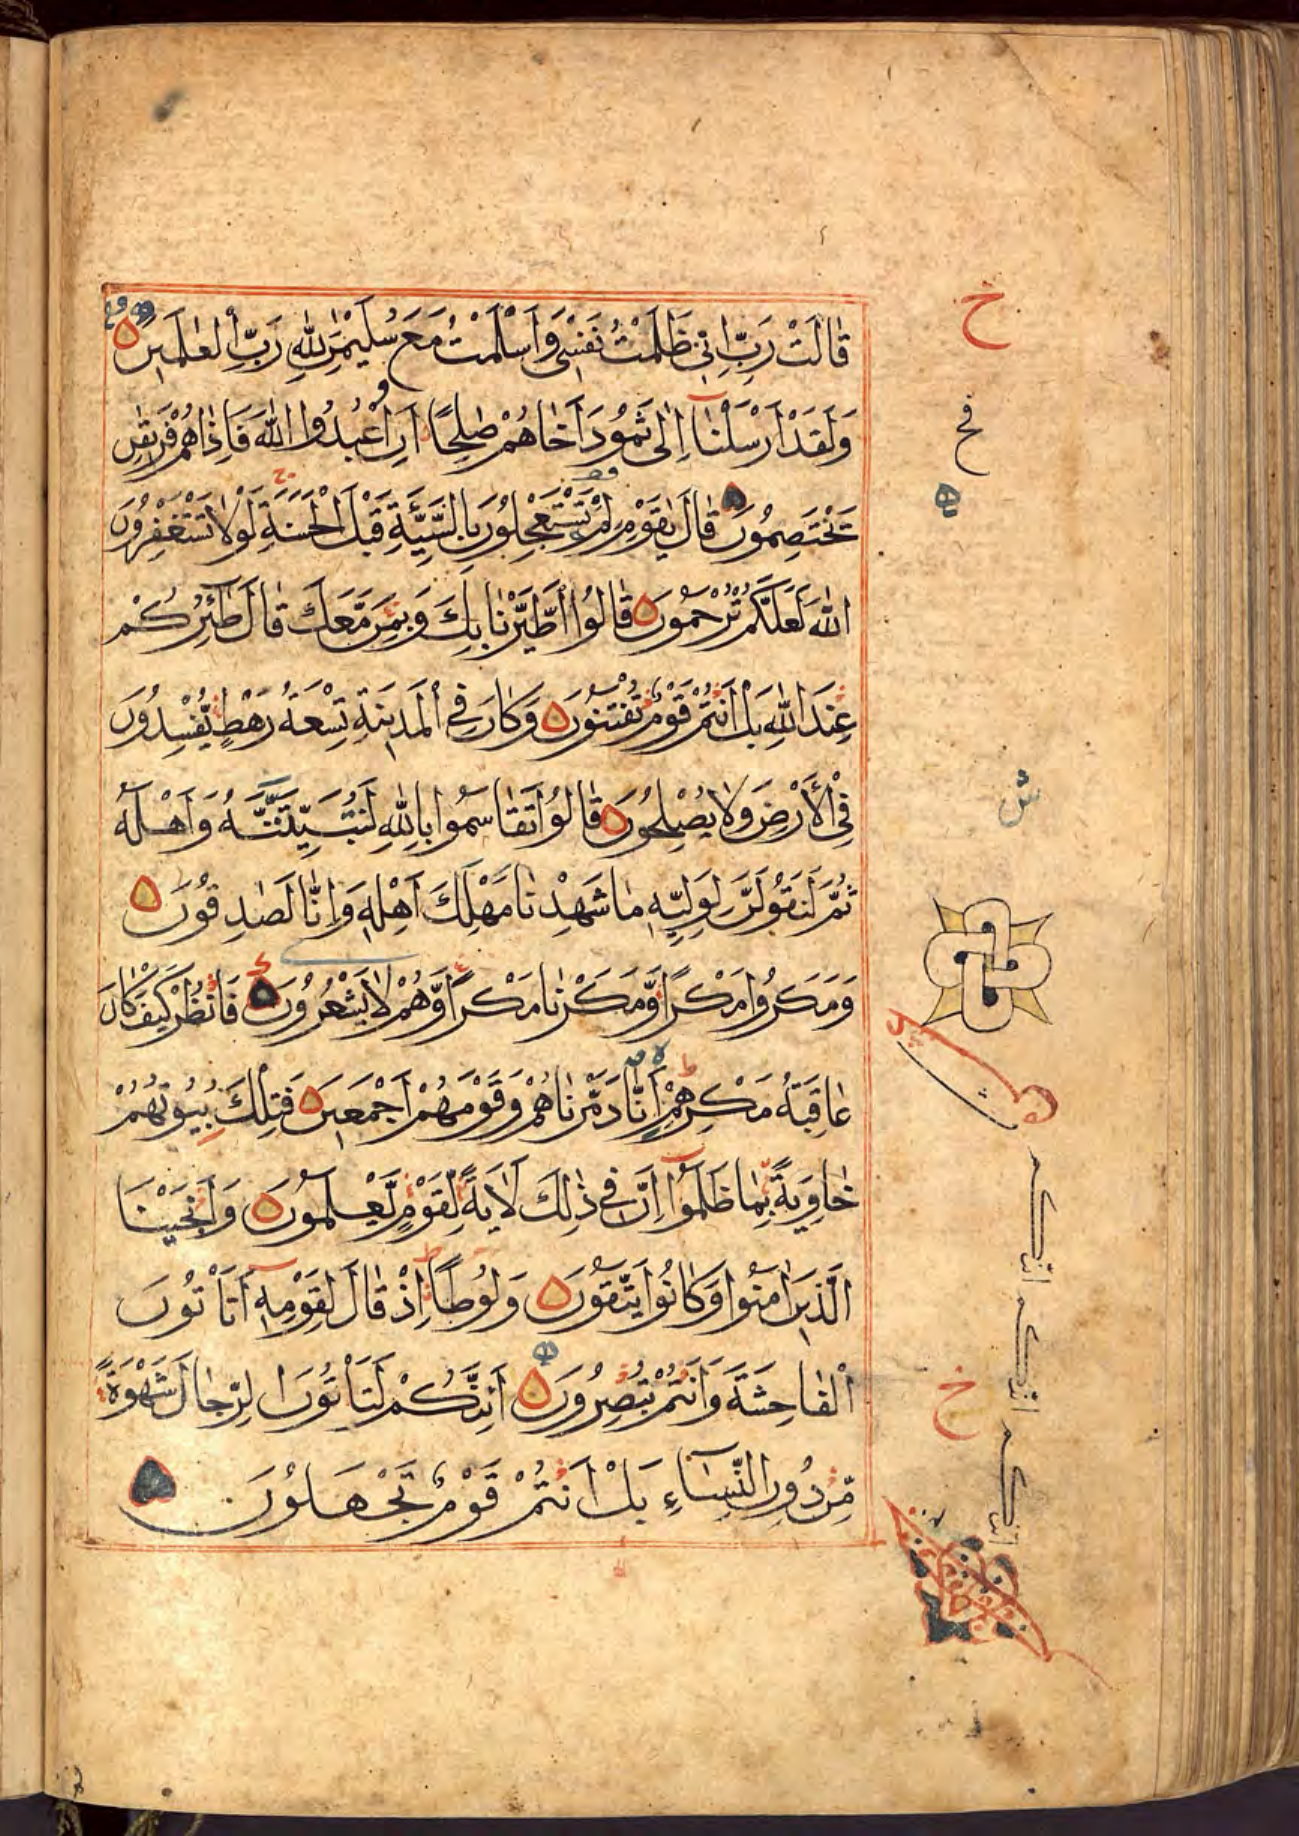 قَالَتْ رَبِّ اِنّٖى ظَلَمْتُ نَفْسٖى وَاَسْلَمْتُ مَعَ سُلَيْمٰنَ لِلّٰهِ رَبِّ الْعٰلَمٖينَ
وَلَقَدْ اَرْسَلْنَآ اِلٰى ثَمُوْدَ اَخَاهُمْ صٰلِحًا اَنِ اعْبُدُوا اللّٰهَ فَاِذَاهُمْ فَرِيْقٰنِ
يَخْتَصِمُوْنَ قَالَ يٰقَوْمِ لِمَ تَسْتَعْجِلُوْنَ بِالسَّيِّئَةِ قَبْلَ الْحَسَنَةِ لَوْلَا تَسْتَغْفِرُوْنَ
اللّٰهَ لَعَلَّكُمْ تُرْحَمُوْنَ قَالُوا اطَّيَّرْنَا بِكَ وَبِمَنْ مَّعَكَ قَالَ طٰٓئِرُكُمْ
عِنْدَ اللّٰهِ بَلْ اَنْتُمْ قَوْمٌ تُفْتَنُوْنَ وَكَانَ فِى الْمَدِيْنَةِ تِسْعَةُ رَهْطٍ يُّفْسِدُوْنَ
فِى الْاَرْضِ وَلَا يُصْلِحُوْنَ قَالُوْا تَقَاسَمُوْا بِاللّٰهِ لَنُبَيِّتَنَّهٗ وَاَهْلَهٗ
ثُمَّ لَنَقُوْلَنَّ لِوَلِيِّهٖ مَا شَهِدْنَا مَهْلِكَ اَهْلِهٖ وَاِنَّا لَصٰدِقُوْنَ
وَمَكَرُوْا مَكْرًا وَّمَكَرْنَا مَكْرًا وَّهُمْ لَا يَشْعُرُوْنَ فَانْظُرْ كَيْفَ كَانَ
عَاقِبَةُ مَكْرِهِمْ اَنَّا دَمَّرْنَاهُمْ وَقَوْمَهُمْ اَجْمَعٖينَ فَتِلْكَ بُيُوْتُهُمْ
خَاوِيَةً بِمَا ظَلَمُوْٓا اِنَّ فِىْ ذٰلِكَ لَاٰيَةً لِّقَوْمٍ يَّعْلَمُوْنَ وَاَنْجَيْنَا
الَّذٖينَ اٰمَنُوْا وَكَانُوْا يَتَّقُوْنَ وَلُوْطًا اِذْ قَالَ لِقَوْمِهٖٓ اَتَاْتُوْنَ
الْفَاحِشَةَ وَاَنْتُمْ تُبْصِرُوْنَ اَئِنَّكُمْ لَتَاْتُوْنَ الرِّجَالَ شَهْوَةً
مِّنْ دُوْنِ النِّسَآءِ بَلْ اَنْتُمْ قَوْمٌ تَجْهَلُوْنَ